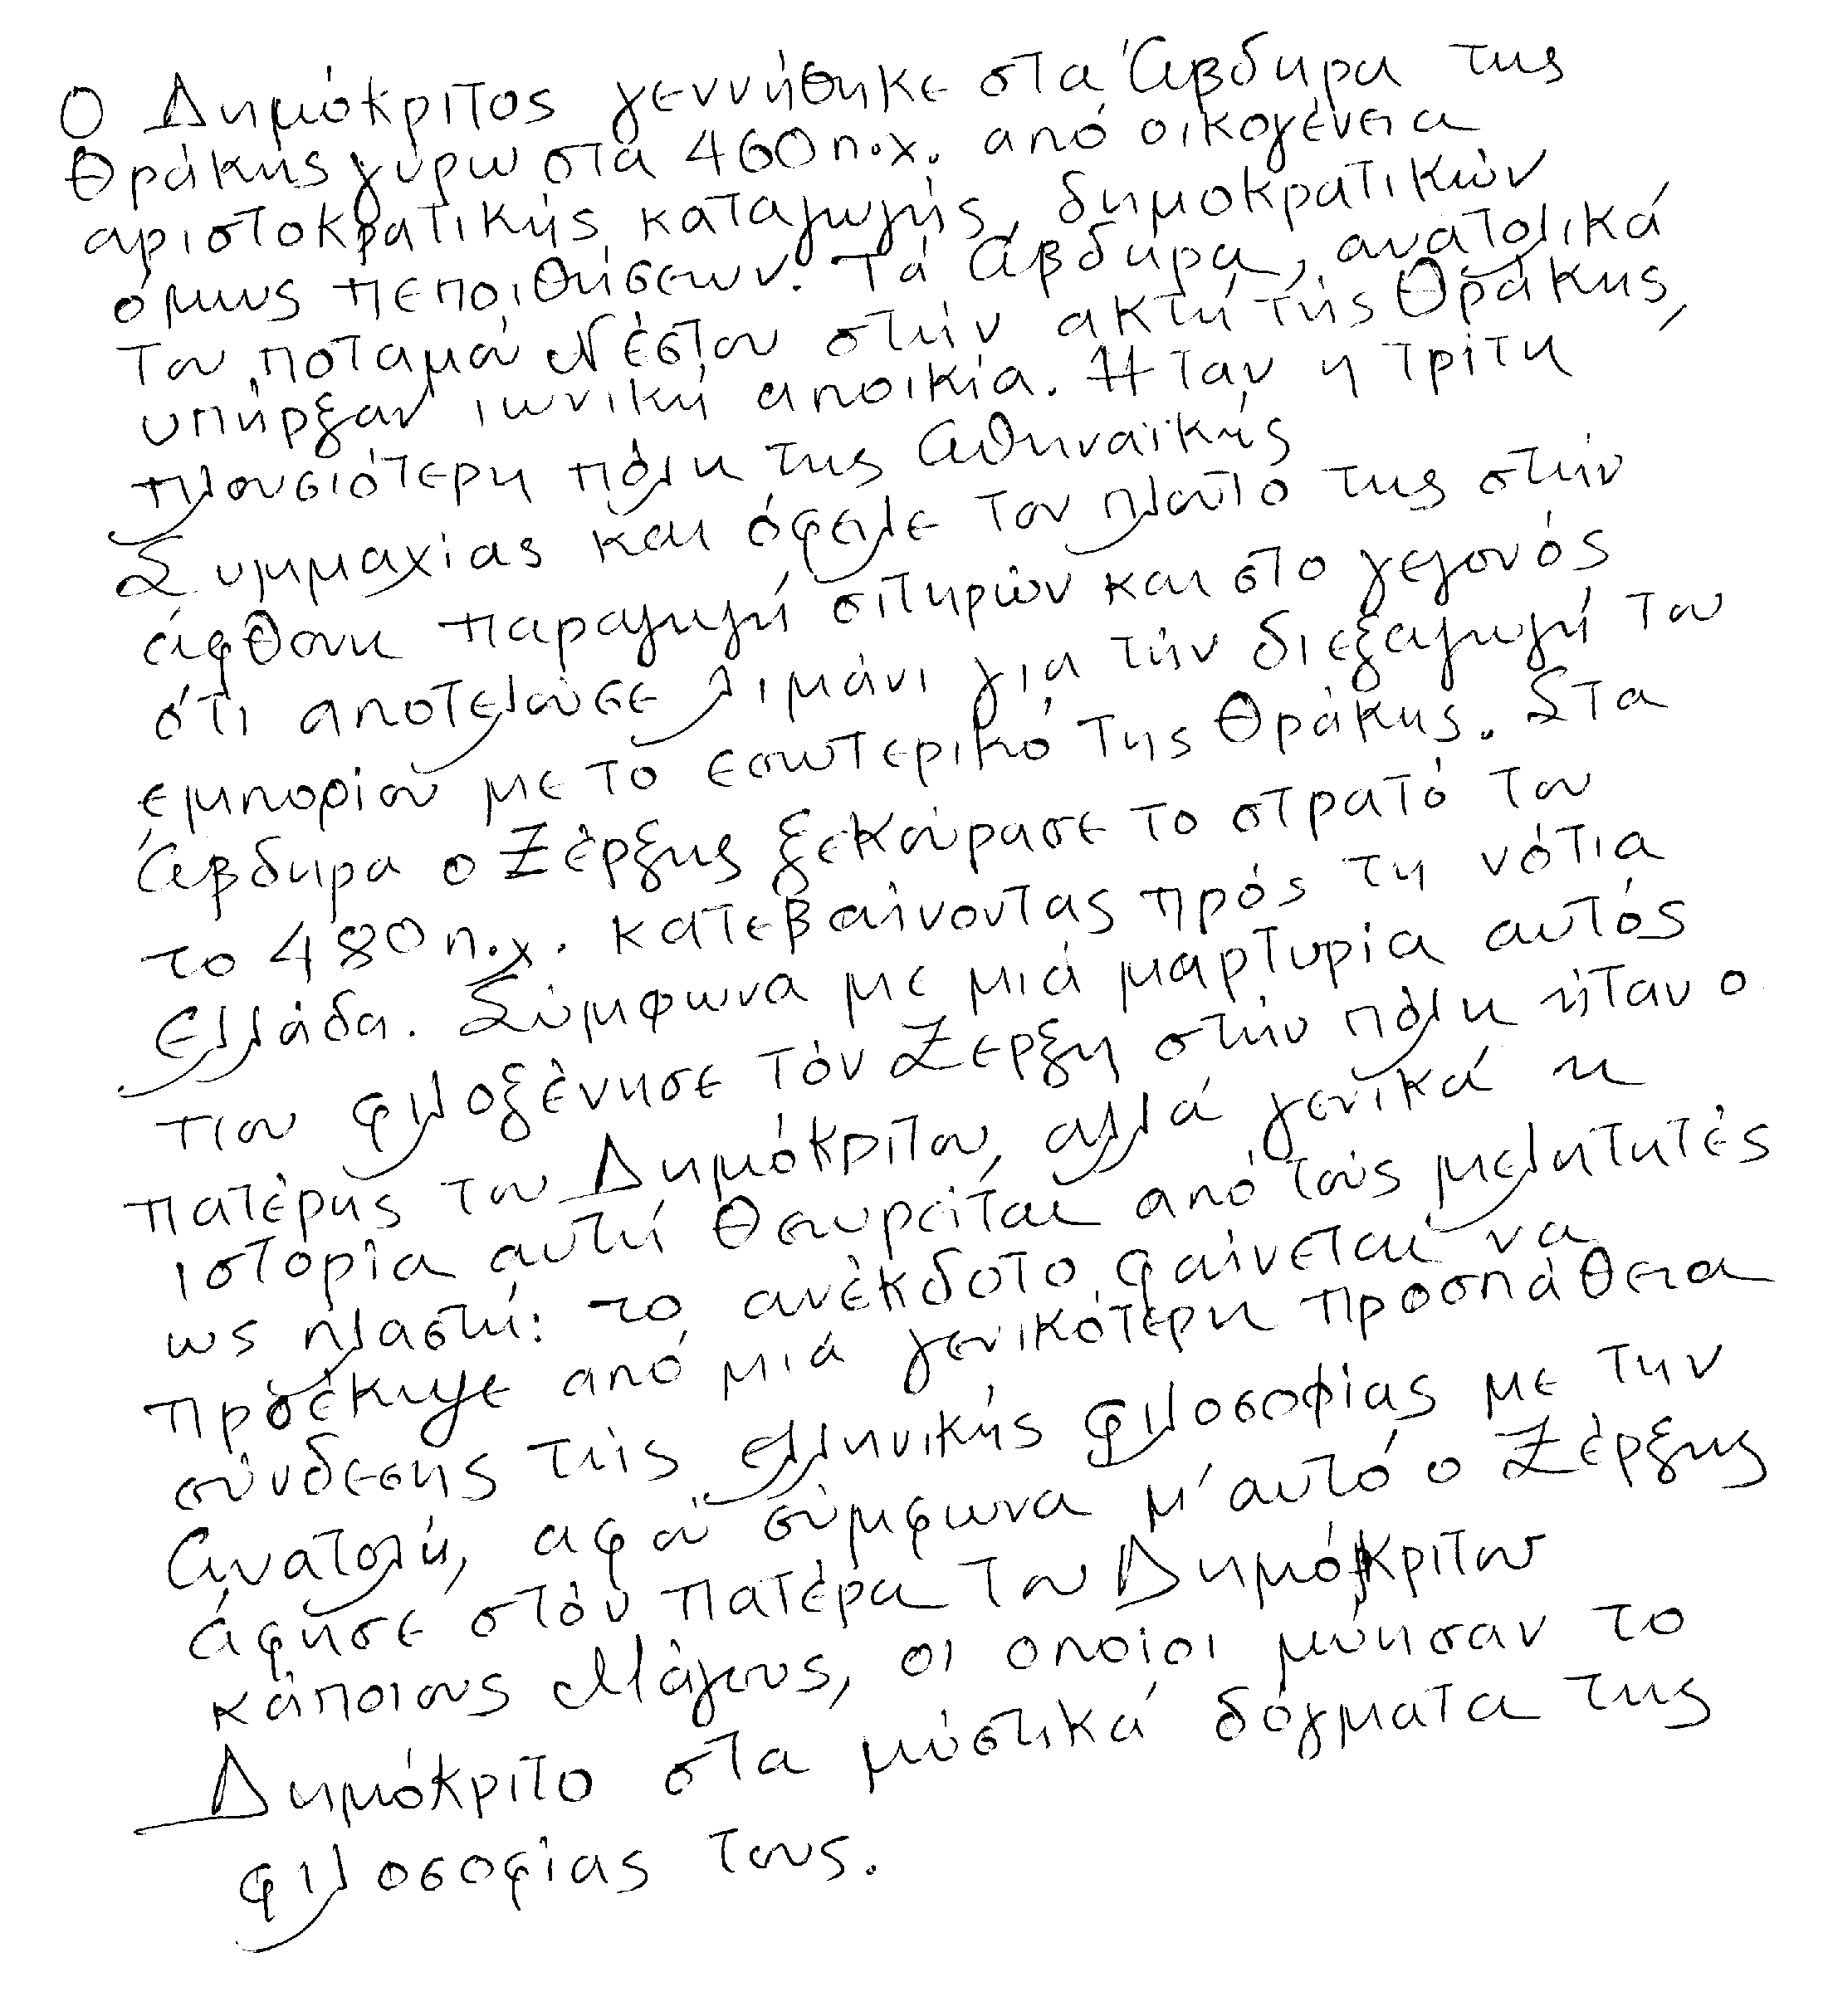 Ο Δημόκριτος γεννήθηκε στα Άβδηρα της
Θράκης γύρω στα 460 π.χ. από οικογένεια
αριστοκρατικής καταγωγής, δημοκρατικών
όμως πεποιθήσεων. Τα Άβδηρα, ανατολικά
του ποταμού Νέστου στήν ακτή τής Θράκης,
υπήρξαν ιωνική αποικία. Ήταν η τρίτη
πλουσιότερη πόλη της Αθηναϊκής
Συμμαχίας και όφειλε τον πλούτο της στήν
άφθονη παραγωγή σιτηρών και στο γεγονός
ότι αποτελούσε λιμάνι για τήν διεξαγωγή του
εμπορίου με το εσωτερικό της Θράκης. Στα
Άβδηρα ο Ξέρξης ξεκούρασε το στρατό του
το 480 π.χ. κατεβαίνοντας πρός τη νότια
Ελλάδα. Σύμφωνα με μιά μαρτυρία αυτός
που φιλοξένησε τόν Ξέρξη στήν πόλη ήταν ο
πατέρης του Δημόκριτου, αλλά γενικά η
ιστορία αυτή θεωρείται από τούς μελητητές
ως πλαστή: το ανέκδοτο φαίνεται να
προέκυψε από μιά γενικότερη προσπάθεια
σύνδεσης τής ελληνικής φιλοσοφίας με την
Ανατολή, αφού σύμφωνα μ' αυτό ο Ξέρξης
άφησε στόν πατέρα του Δημόκριτου
κάποιους Μάγους, οι οποίοι μύησαν το
Δημόκριτο στα μυστικά δόγματα της
φιλοσοφίας τους.